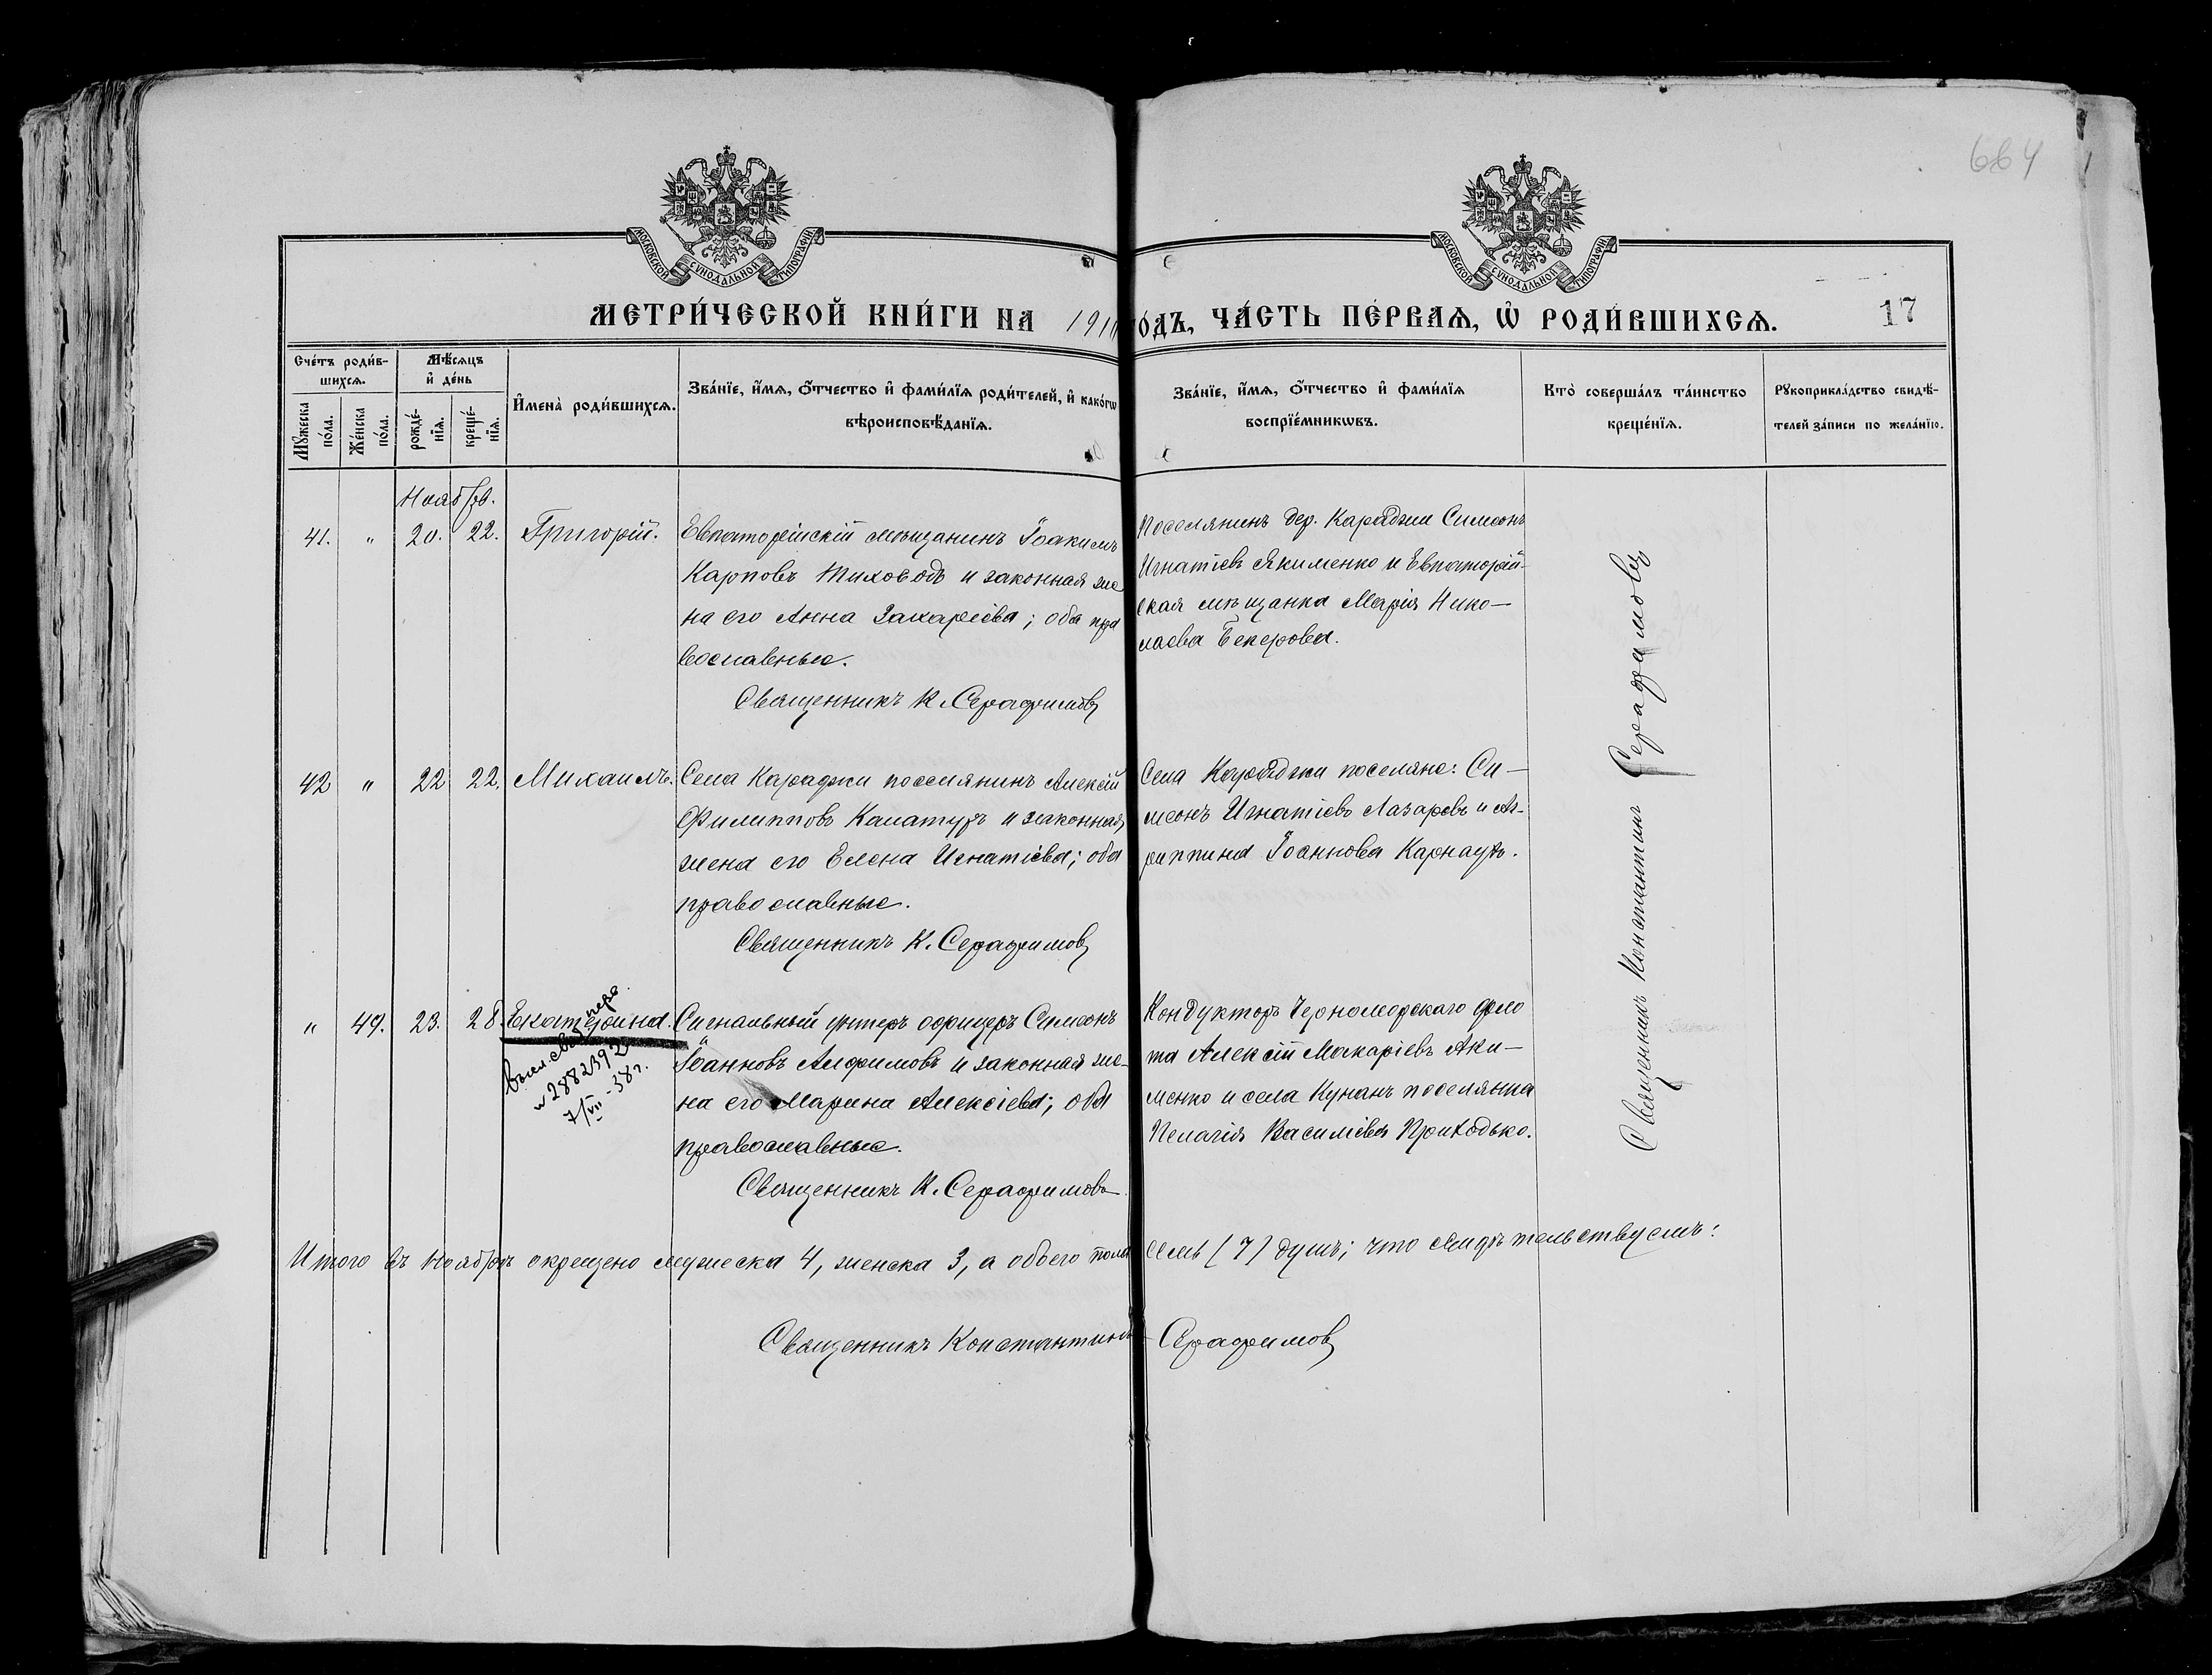 664
МОСКОВСКОЙ СѴНОДАЛЬНОЙ ТИПОГРАФІИ
МОСКОВСКОЙ СѴНОДАЛЬНОЙ ТИПОГРАФІИ
МЕТРИ́ЧЕСКОЙ КНИ́ГИ НА 191 ГО́ДЪ, ЧА́СТЬ ПЕ́РВАѦ, Ѽ РОДИ́ВШИХСѦ.
17
Сче́тъ роди́в-
шихсѧ.
Мѣ́сѧцъ
и҆ де́нь
Мꙋ́жеска
по́ла.
Же́нска
по́ла.
рожде́-
нїѧ.
креще́-
нїѧ.
И҆мена̀ роди́вшихсѧ.
Зва́нїе, и҆́мѧ, ѻ҆́тчество и҆ фами́лїѧ роди́телей, и҆ како́гѡ
вѣроисповѣ́данїѧ.
Зва́нїе, и҆́мѧ, ѻ҆́тчество и҆ фами́лїѧ
воспрїе́мникѡвъ.
Кто̀ соверша́лъ та́инство
креще́нїѧ.
Рꙋкоприкла́дство свидѣ́-
телей за́писи по жела́нїю.
Ноябрь.
41. " 20. 22. Григорій.
Евпаторійскій мѣщанинъ Іоакимъ
Карповъ Тиховодъ и законная же
на его Анна Захаріева; оба пра
вославные.
Священникъ К. Серафимовъ
Поселянинъ дер. Караджи Симеонъ
Игнатіевъ Якименко и Евпаторій-
ская мѣщанка Марія Нико-
лаева Бекерова.
42 " 22 22. Михаилъ.
Села Караджи поселянинъ Алексій
Филипповъ Калатуръ и законная
жена его Елена Игнатіева; оба
православные.
Священникъ К. Серафимовъ
Села Караджи поселяне: Си-
меонъ Игнатіевъ Лазаревъ и Аг-
риппина Іоаннова Карнаухъ.
" 49. 23. 28. Екатерина.
N 2882392
7/VII-38 г.
Сигнальный унтеръ офицеръ Симеонъ
Іоанновъ Алфимовъ и законная же-
на его Марина Алексіева; оба
православные.
Священникъ К. Серафимовъ
Кондукторъ Черноморскаго фло
та Алексій Макаріевъ Аки-
менко и села Кунанъ поселянка
Пелагія Василіева Приходько.
Священникъ Константинъ Серафимовъ
Итого въ Ноябрѣ окрещено мужеска 4, женска 3, а обоего пола семь (7) душъ; что свидѣтельствуемъ:
Священникъ Константинъ Серафимовъ